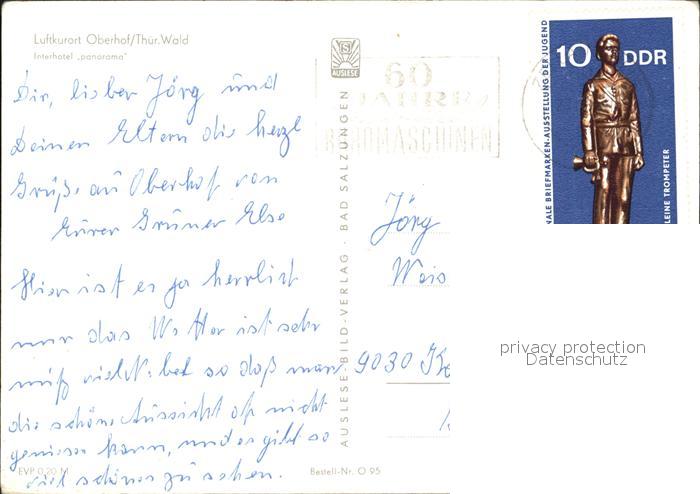 Luftkurort Oberhof/Thür. Wald
Interhotel „panorama"
Dir, lieber Jörg und
Deinen Eltern die herzl
Grüße aus Oberhof von
Eurer Grüner Else
Hier ist es ja herrlich
nur das Wetter ist sehr
so daß man
die schöne Aussicht oft nicht
geniesen kann, und es gibt so
viel schönes zu sehen.
EVP 0,20 M
Bestell-Nr. O 95
AUSLESE-BILD-VERLAG · BAD SALZUNGEN
AUSLESE
60
JAHRE
BÜROMASCHINEN
10 DDR
NALE BRIEFMARKEN-AUSSTELLUNG DER JUGEND
LEINE TROMPETER
Jörg
Weis
9030 K
privacy protection
Datenschutz